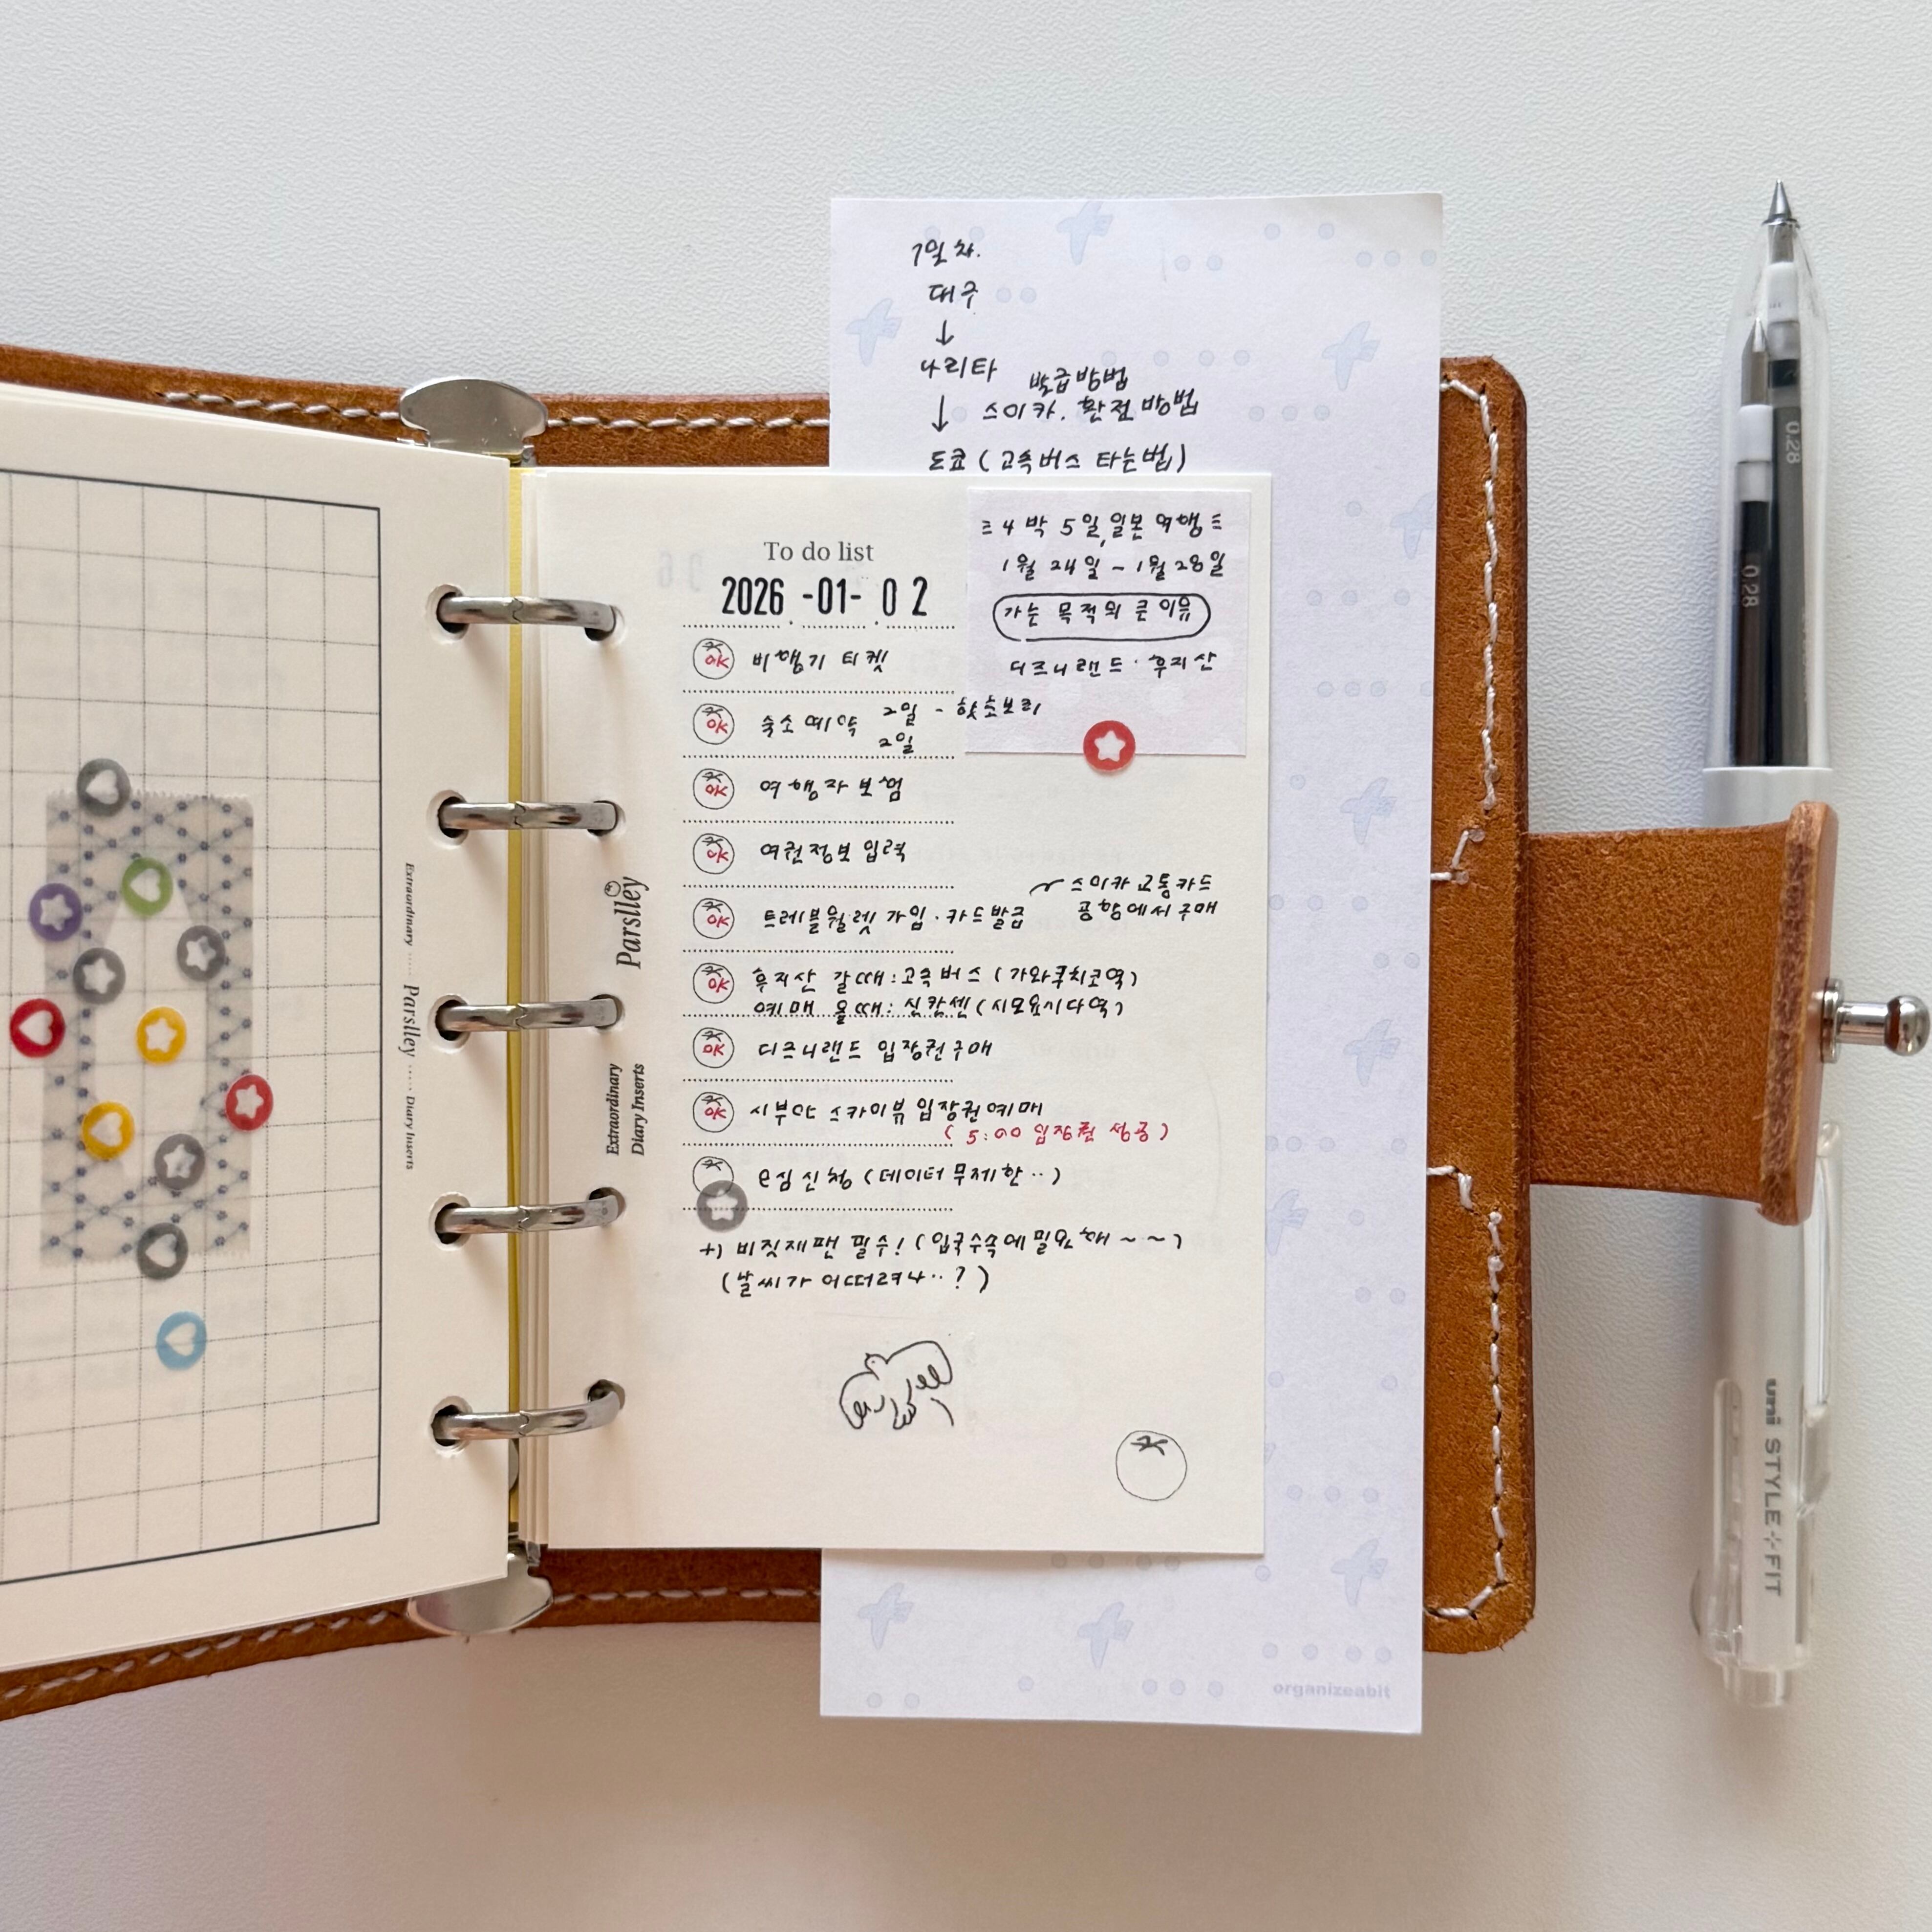 1일차.
대구
↓
나리타
발급방법
스이카. 환전 방법
↓
도쿄 (고속버스 타는법)
4박 5일, 일본 여행
1월 24일 - 1월 28일
가는 목적의 큰 이유
디즈니랜드 · 후지산
To do list
2026 -01- 02
OK 비행기 티켓
OK 숙소 예약 2일 - 핫초보리
2일
OK 여행자 보험
OK 여권정보 입력
OK 트레블월렛 가입 · 카드발급
스이카 교통카드
공항에서 구매
OK 후지산 갈때 : 고속버스 (가와구치코역)
예매 올때 : 신칸센 (시모요시다역)
OK 디즈니랜드 입장권구매
OK 시부야 스카이뷰 입장권예매
( 5:00 입장권 성공 )
e심 신청 (데이터 무제한..)
+) 비짓재팬 필수! (입국수속에 필요해 ~~)
(날씨가 어떠려나..?)
Parslley
Extraordinary
Diary Inserts
Extraordinary ····· Parslley ····· Diary Inserts
organizeabit
0.28
0.28
uni STYLE FIT